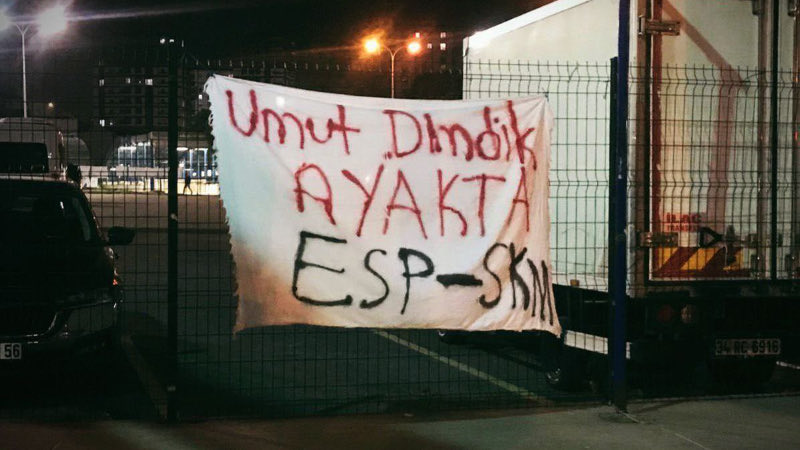 Umut Dimdik
AYAKTA
ESP-SKM
İLAÇ
56
34 RG 6916